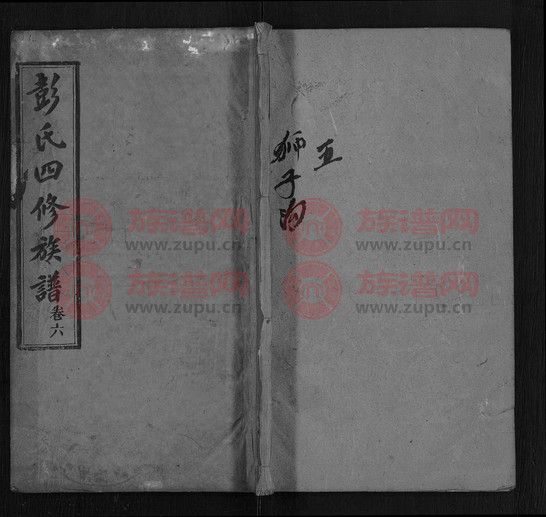 彭氏四修族譜
卷六
五
狮子
族谱网
www.zupu.cn
族谱网
www.zupu.cn
族谱网
www.zupu.cn
族谱网
www.zupu.cn